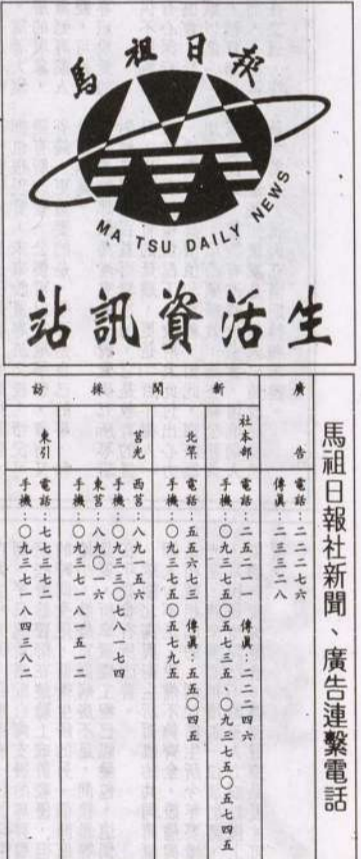 馬祖日報
MA TSU DAILY NEWS
生活資訊站
馬祖日報社新聞、廣告連繫電話
廣告
電話:二二二七六
傳真:二三三二八
新聞採訪
社本部
電話:二五二一一 傳真:二二二四六
手機:〇九三七五〇五七三五、〇九三七五〇五七四五
北竿
電話:五五六七三 傳真:五五〇四五
手機:〇九三七五〇五七九五
莒光
西莒:八九一五六
手機:〇九三三〇七八一七四
東莒:八九〇一六
手機:〇九三七一八一五一二
東引
電話:七七三七二
手機:〇九三七一八四三八二